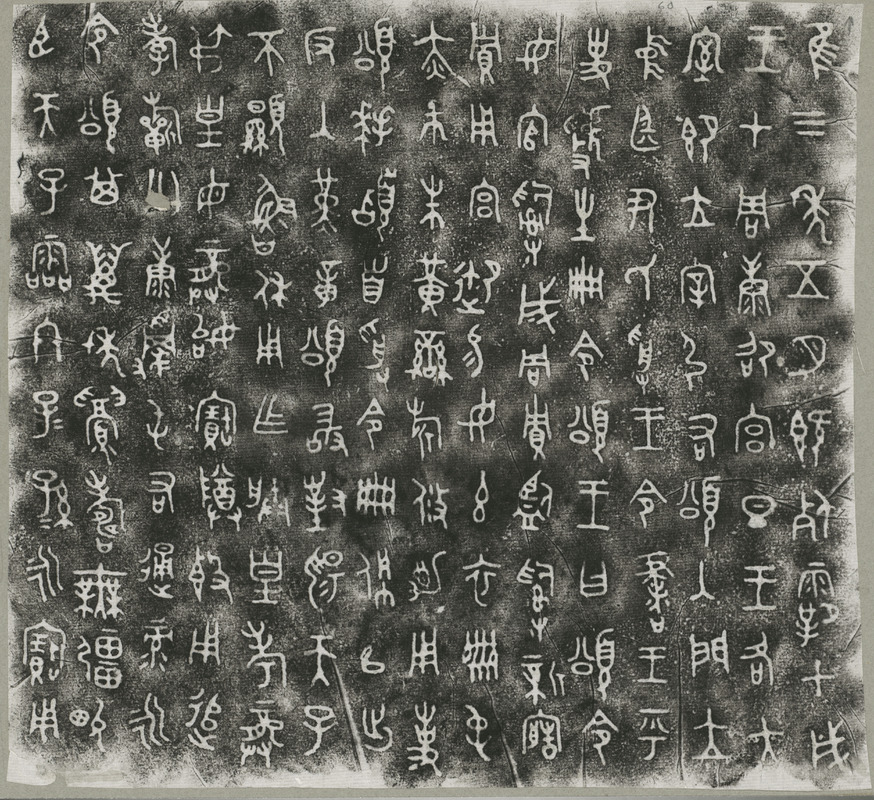 隹三年五月既死霸甲戌
王才周康卲宮旦王各大
室即立宰引右頌入門立
中廷尹氏受王令書王乎
史虢生冊令頌王曰頌令
女官𤔲成周貯監𤔲新造
貯用宮御易女玄衣黹屯
赤巿朱黃䜌旂攸勒用事
頌拜𩒨首受令冊佩以出
反入堇章頌敢對揚天子
不顯魯休用乍朕皇考龔
弔皇母龔姒寶尊簋用追
孝祈匃康𩁹屯右通彔永
令頌其萬年眉壽無疆畯
臣天子霝冬子孫永寶用